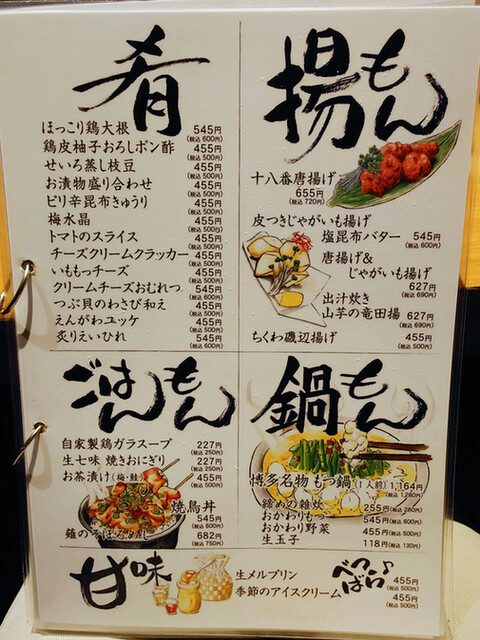 肴
ほっこり鶏大根 545円
(税込 600円)
鶏皮柚子おろしポン酢 455円
(税込 500円)
せいろ蒸し枝豆 455円
(税込 500円)
お漬物盛り合わせ 455円
(税込 500円)
ピリ辛昆布きゅうり 455円
(税込 500円)
梅水晶 455円
(税込 500円)
トマトのスライス 455円
(税込 500円)
チーズクリームクラッカー 455円
(税込 500円)
いももっチーズ 455円
(税込 500円)
クリームチーズおむれつ 545円
(税込 600円)
つぶ貝のわさび和え 455円
(税込 500円)
えんがわユッケ 455円
(税込 500円)
炙りえいひれ 545円
(税込 600円)
揚もん
十八番唐揚げ
655円
(税込 720円)
皮つきじゃがいも揚げ
塩昆布バター 545円
(税込 600円)
唐揚げ&
じゃがいも揚げ
627円
(税込 690円)
出汁炊き
山芋の竜田揚 627円
(税込 690円)
ちくわ磯辺揚げ 455円
(税込 500円)
ごはんもん
自家製鶏ガラスープ 227円
(税込 250円)
生七味 焼きおにぎり 227円
(税込 250円)
お茶漬け(梅・鮭) 455円
(税込 500円)
焼鳥丼
545円
(税込 600円)
682円
(税込 750円)
鍋もん
博多名物 もつ鍋(1人前) 1,164円
(税込 1,280円)
締めの雑炊 255円
(税込 280円)
おかわりもつ 545円
(税込 600円)
おかわり野菜 455円
(税込 500円)
生玉子 118円(税込 130円)
甘味
生メルプリン
季節のアイスクリーム
べつばら♪
455円
(税込 500円)
455円
(税込 500円)